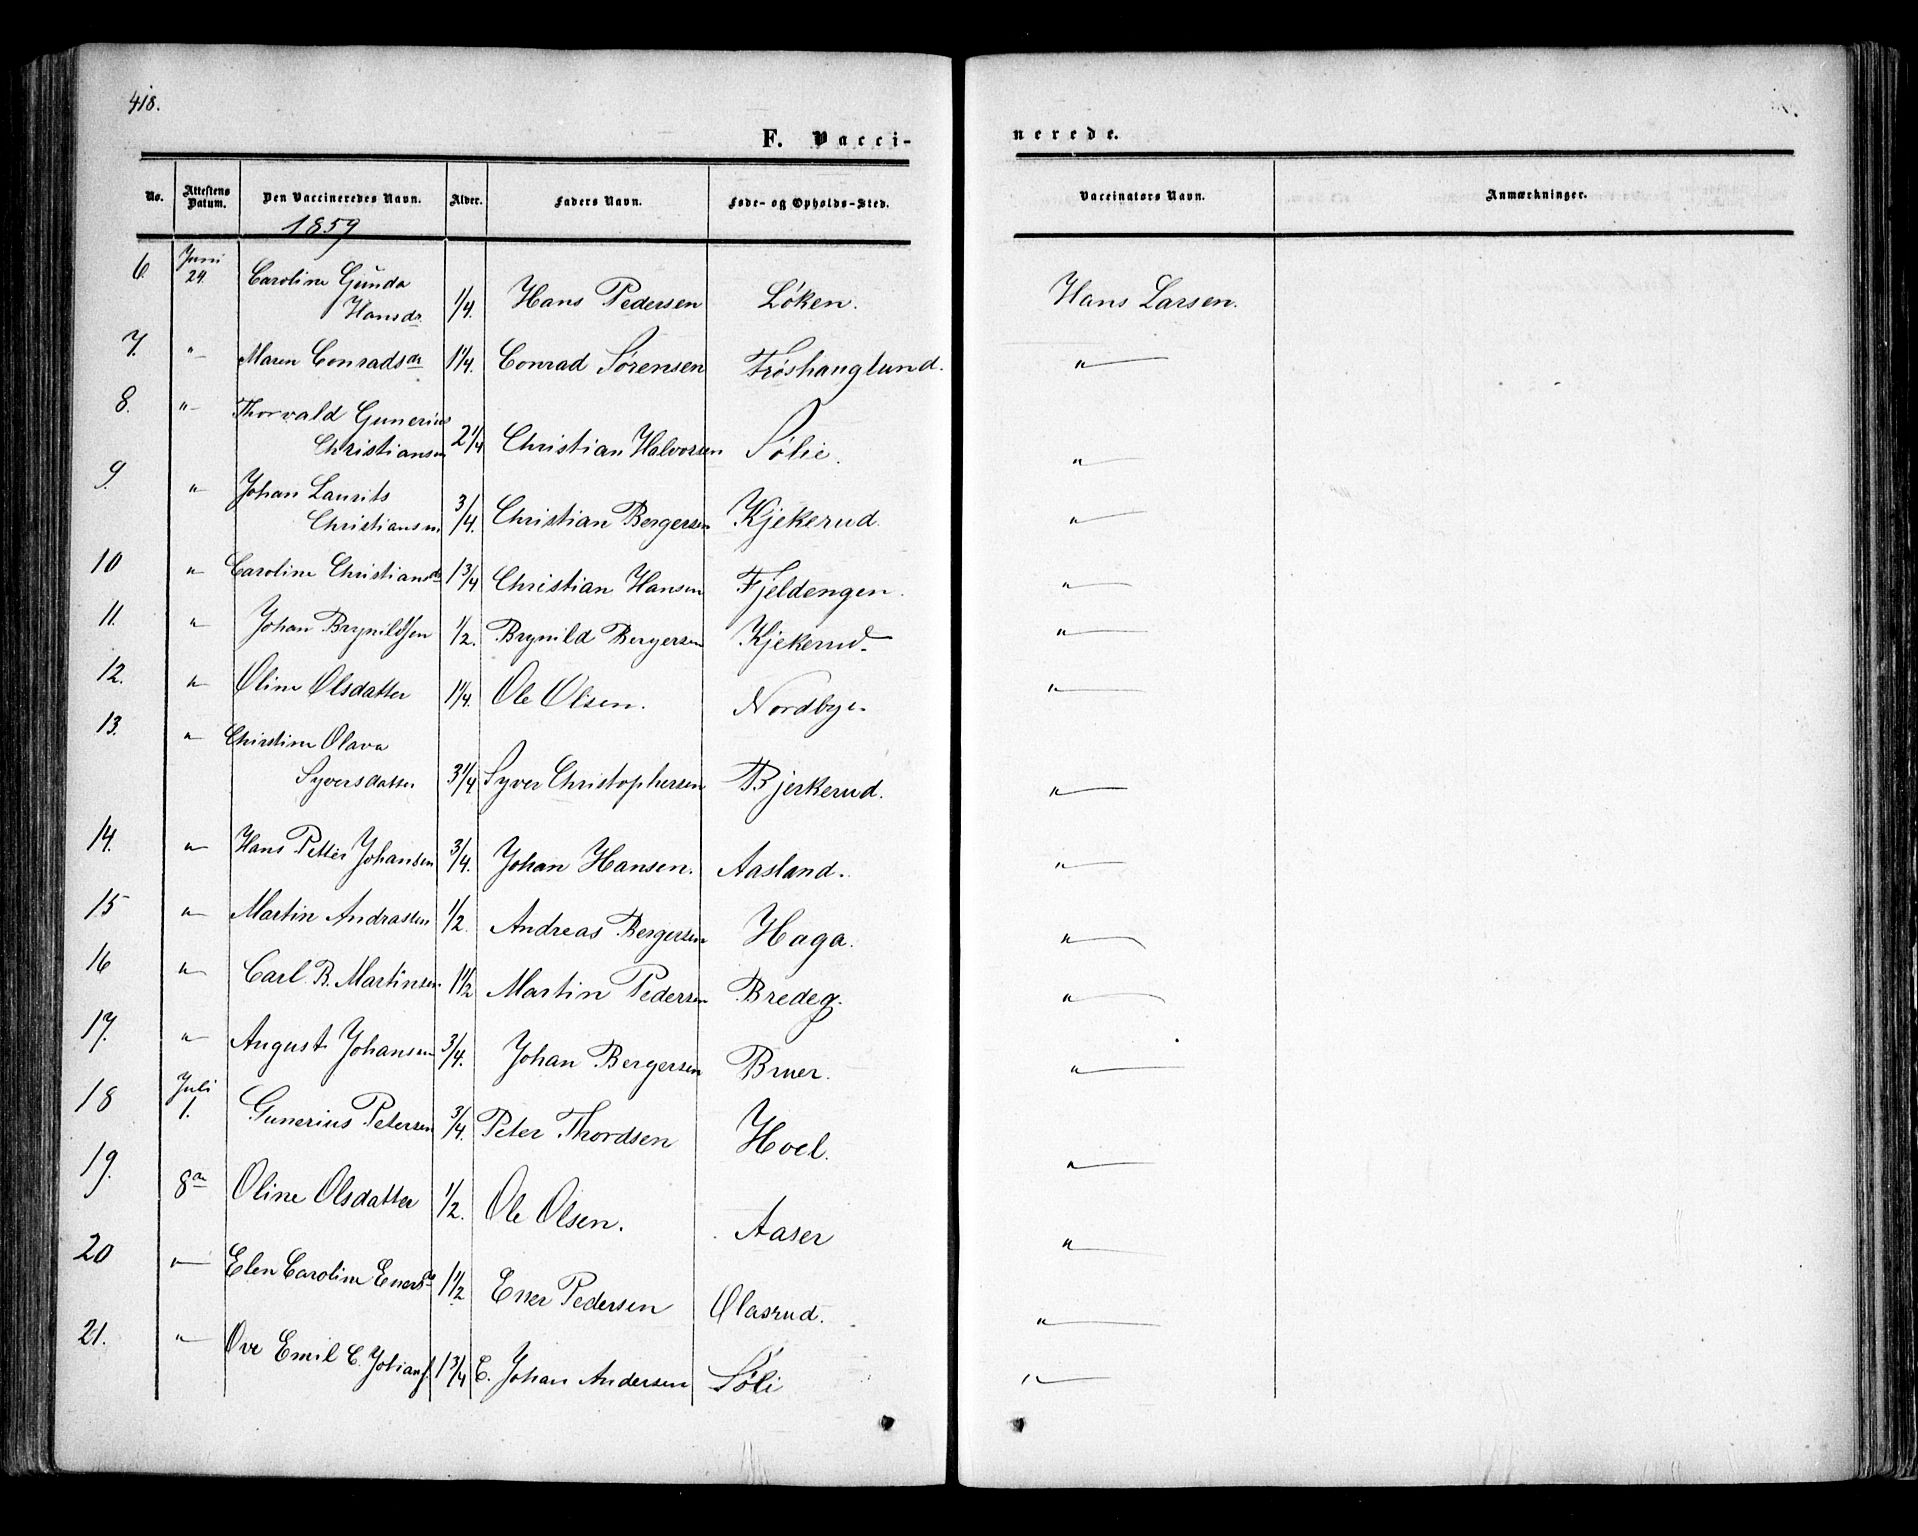 418.
F. Vacci-
nerede.
No. | Attestens Datum. | Den Vaccineredes Navn. | Alder. | Faders Navn. | Føde- og Opholds-Sted. | Vaccinators Navn. | Anmærkninger.
1859
6. | Juni 24 | Caroline Gunda Hansdr | 1/4. | Hans Pedersen | Løken. | Hans Larsen.
7. | " | Maren Conradsdr | 1 1/4. | Conrad Sørensen | Frøshauglund. | "
8. | " | Thorvald Gunerius Christiansen | 2 1/4 | Christian Halvorsen | Sølie. | "
9. | " | Johan Laurits Christiansen | 3/4. | Christian Bergersen | Kjekerud. | "
10 | " | Caroline Christiansdr | 1 3/4 | Christian Hansen | Fjeldengen. | "
11. | " | Johan Brynildsen | 1/2. | Brynild Bergersen | Kjekerud. | "
12. | " | Oline Olsdatter | 1 1/4. | Ole Olsen. | Nordbye. | "
13. | " | Christine Olava Syversdatter | 3 1/4 | Syver Christophersen | Bjerkerud. | "
14. | " | Hans Petter Johansen | 3/4. | Johan Hansen. | Aasland. | "
15 | " | Martin Andrassen | 1/2. | Andreas Bergersen | Haga. | "
16 | " | Carl B. Martinsen. | 1 1/2 | Martin Pedersen | Bredeg. | "
17. | " | August Johansen | 3/4. | Johan Bergersen | Bruer. | "
18 | Juli 1. | Gunerius Petersen | 3/4. | Peter Thordsen | Hoel. | "
19. | 8de | Oline Olsdatter | 1/2. | Ole Olsen. | Aaser | "
20 | " | Elen Caroline Enersdr | 1 1/2 | Ener Pedersen | Olasrud. | "
21. | " | Ove Emil C. Johans. | 1 3/4 | C. Johan Andersen | Søli | "